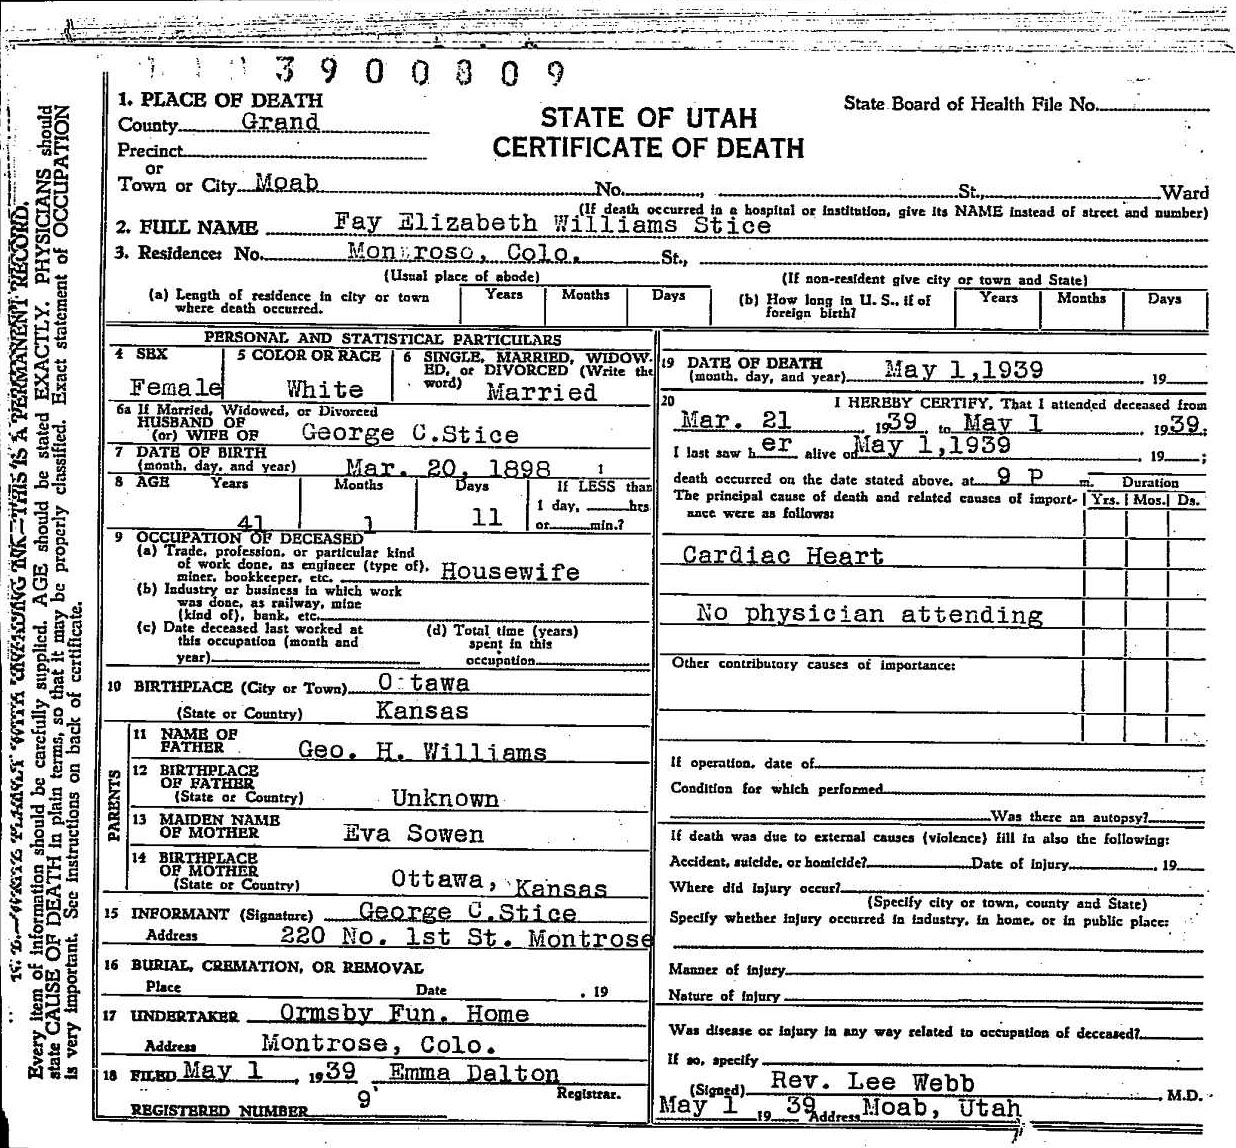 3900809
1. PLACE OF DEATH
County Grand
STATE OF UTAH
CERTIFICATE OF DEATH
State Board of Health File No.
Precinct
or
Town or City Moab No. , St., Ward
(If death occurred in a hospital or institution, give its NAME instead of street and number)
2. FULL NAME Fay Elizabeth Williams Stice
3. Residence: No. Montrose, Colo. St.,
(Usual place of abode) (If non-resident give city or town and State)
(a) Length of residence in city or town where death occurred. Years Months Days
(b) How long in U. S., if of foreign birth? Years Months Days
PERSONAL AND STATISTICAL PARTICULARS
4 SEX Female
5 COLOR OR RACE White
6 SINGLE, MARRIED, WIDOW-
ED, or DIVORCED (Write the
word) Married
6a If Married, Widowed, or Divorced
HUSBAND OF
(or) WIFE OF George C.Stice
7 DATE OF BIRTH
(month, day, and year) Mar. 20, 1898
8 AGE Years Months Days If LESS than
1 day, hrs
41 1 11 or min.?
9 OCCUPATION OF DECEASED
(a) Trade, profession, or particular kind
of work done, as engineer (type of),
miner, bookkeeper, etc. Housewife
(b) Industry or business in which work
was done, as railway, mine
(kind of), bank, etc.
(c) Date deceased last worked at
this occupation (month and
year)
(d) Total time (years)
spent in this
occupation
10 BIRTHPLACE (City or Town) Ottawa
(State or Country) Kansas
PARENTS
11 NAME OF
FATHER Geo. H. Williams
12 BIRTHPLACE
OF FATHER
(State or Country) Unknown
13 MAIDEN NAME
OF MOTHER Eva Sowen
14 BIRTHPLACE
OF MOTHER
(State or Country) Ottawa, Kansas
15 INFORMANT (Signature) George C.Stice
Address 220 No. 1st St. Montrose
16 BURIAL, CREMATION, OR REMOVAL
Place Date , 19
17 UNDERTAKER Ormsby Fun. Home
Address Montrose, Colo.
18 FILED May 1 , 1939 Emma Dalton
Registrar.
REGISTERED NUMBER 9
19 DATE OF DEATH
(month, day, and year) May 1,1939 , 19
20 I HEREBY CERTIFY, That I attended deceased from
Mar. 21 , 1939 to May 1 , 1939;
I last saw h er alive on May 1,1939 , 19 ;
death occurred on the date stated above, at 9 P m.
The principal cause of death and related causes of import-
ance were as follows:
Duration
Yrs. Mos. Ds.
Cardiac Heart
No physician attending
Other contributory causes of importance:
If operation, date of
Condition for which performed
Was there an autopsy?
If death was due to external causes (violence) fill in also the following:
Accident, suicide, or homicide? Date of injury , 19
Where did injury occur?
(Specify city or town, county and State)
Specify whether injury occurred in industry, in home, or in public place:
Manner of injury
Nature of injury
Was disease or injury in any way related to occupation of deceased?
If so, specify
(Signed) Rev. Lee Webb , M.D.
May 1 19 39 Address Moab, Utah
N. B.—WRITE PLAINLY WITH UNFADING INK—THIS IS A PERMANENT RECORD.
Every item of information should be carefully supplied. AGE should be stated EXACTLY. PHYSICIANS should
state CAUSE OF DEATH in plain terms, so that it may be properly classified. Exact statement of OCCUPATION
is very important. See instructions on back of certificate.